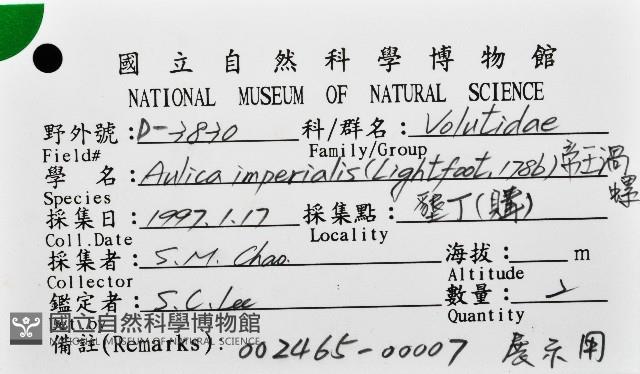 國立自然科學博物館
NATIONAL MUSEUM OF NATURAL SCIENCE
野外號:D-3830 科/群名:Volutidae
Field# Family/Group
學 名:Aulica imperialis (Lightfoot, 1786) 帝王渦螺
Species
採集日:1997.1.17 採集點:墾丁(購)
Coll.Date Locality
採集者:S.M. Chao 海拔: m
Collector Altitude
鑑定者:S.C. Lee 數量:2
Quantity
國立自然科學博物館
NATIONAL MUSEUM OF NATURAL SCIENCE
備註(Remarks):002465-00007 展示用